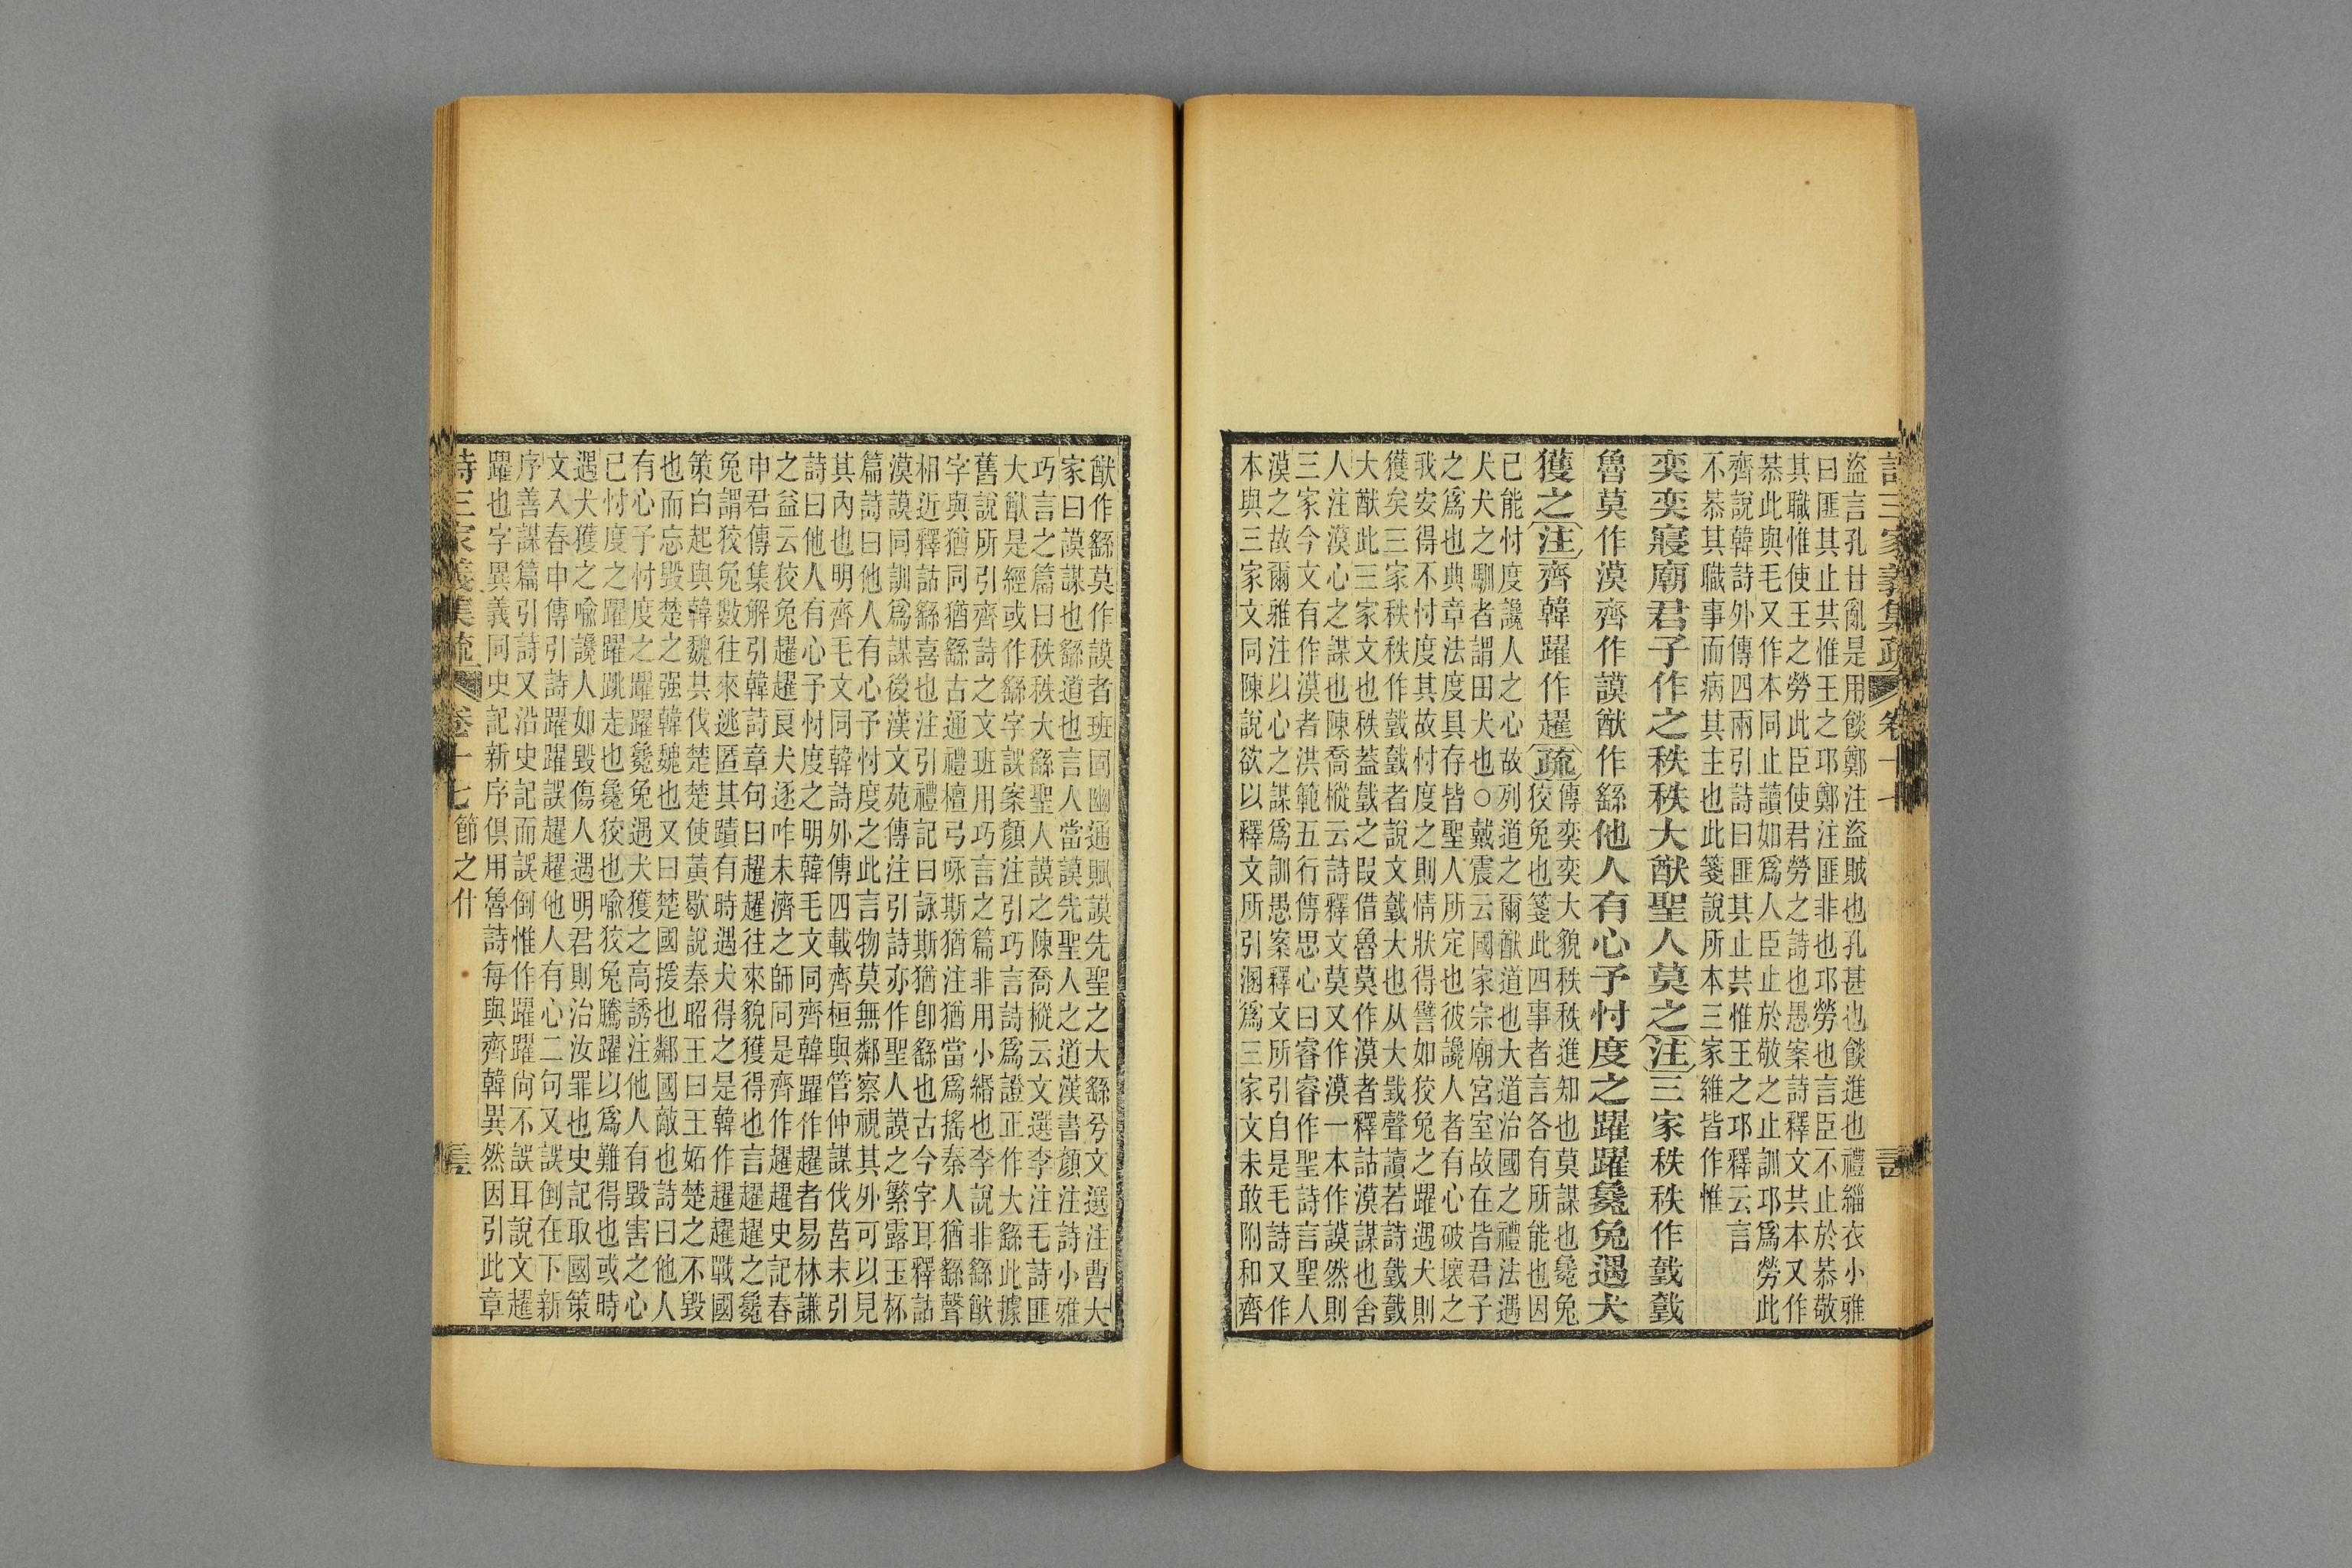 詩三家義集疏 卷十七
盜言孔甘亂是用餤鄭注盜賊也孔甚也餤進也禮緇衣小雅
曰匪其止共惟王之邛鄭注匪非也邛勞也言臣不止於恭敬
其職惟使王之勞此臣使君勞之詩也愚案詩釋文共本又作
恭此與毛又作本同止讀如爲人臣止於敬之止訓邛爲勞此
齊說韓詩外傳四兩引詩曰匪其止共惟王之邛釋云言
不恭其職事而病其主也此箋說所本三家維皆作惟
奕奕寢廟君子作之秩秩大猷聖人莫之注三家秩秩作㦤㦤
魯莫作漠齊作謨猷作繇他人有心予忖度之躍躍毚兔遇犬
獲之注齊韓躍作趯疏傳奕奕大貌秩秩進知也莫謀也毚兔
狡兔也箋此四事者言各有所能也因
已能忖度讒人之心故列道之爾猷道也大道治國之禮法遇
犬犬之馴者謂田犬也○戴震云國家宗廟宮室故在皆君子
之爲也典章法度具存皆聖人所定也彼讒人者有心破壞之
我安得不忖度其故忖度之則情狀得譬如狡兔之躍遇犬則
獲矣三家秩秩作㦤㦤者說文㦤大也从大𢧜聲讀若詩㦤㦤
大猷此三家文也秩蓋㦤之叚借魯莫作漠者釋詁漠謀也舍
人注漠心之謀也陳喬樅云詩釋文莫又作漠一本作謨然則
三家今文有作漠者洪範五行傳思心曰睿睿作聖詩言聖人
漠之故爾雅注以心之謀爲訓愚案釋文所引自是毛詩又作
本與三家文同陳說欲以釋文所引溷爲三家文未敢附和齊
猷作繇莫作謨者班固幽通賦謨先聖之大繇兮文選注曹大
家曰謨謀也繇道也言人當謨先聖人之道漢書顏注詩小雅
巧言之篇曰秩秩大繇聖人謨之陳喬樅云文選李注毛詩匪
大猷是經或作繇字誤案顏注引巧言詩爲證正作大繇此據
舊說所引齊詩之文班用巧言之篇非用小緡也李說非繇猷
字與猶同猶繇古通禮檀弓咏斯猶注猶當爲搖秦人猶繇聲
相近釋詁繇喜也注引禮記曰詠斯猶卽繇也古今字耳釋詁
漠謨同訓爲謀後漢文苑傳注引詩亦作聖人謨之繁露玉杯
篇詩曰他人有心予忖度之此言物莫無鄰察視其外可以見
其內也明齊毛文同韓詩外傳四載齊桓與管仲謀伐莒末引
詩曰他人有心予忖度之明韓毛文同齊韓躍作趯者易林謙
之益云狡兔趯趯良犬逐咋未濟之師同是齊作趯趯史記春
申君傳集解引韓詩章句曰趯趯往來貌獲得也言趯趯之毚
兔謂狡兔數往來逃匿其蹟有時遇犬得之是韓作趯趯戰國
策白起與韓魏共伐楚楚使黃歇說秦昭王曰王妬楚之不毀
也而忘毀楚之强韓魏也又曰楚國援也鄰國敵也詩曰他人
有心予忖度之躍躍毚兔遇犬獲之高誘注他人有毀害之心
已忖度之躍躍跳走也毚狡也喻狡兔騰躍以爲難得也或時
遇犬獲之喻讒人如毀傷人遇明君則治汝罪也史記取國策
文入春申傳引詩躍躍誤趯趯他人有心二句又誤倒在下新
序善謀篇引詩又沿史記而誤倒惟作躍躍尙不誤耳說文趯
躍也字異義同史記新序俱用魯詩每與齊韓異然因引此章
詩三家義集疏 卷十七 節之什